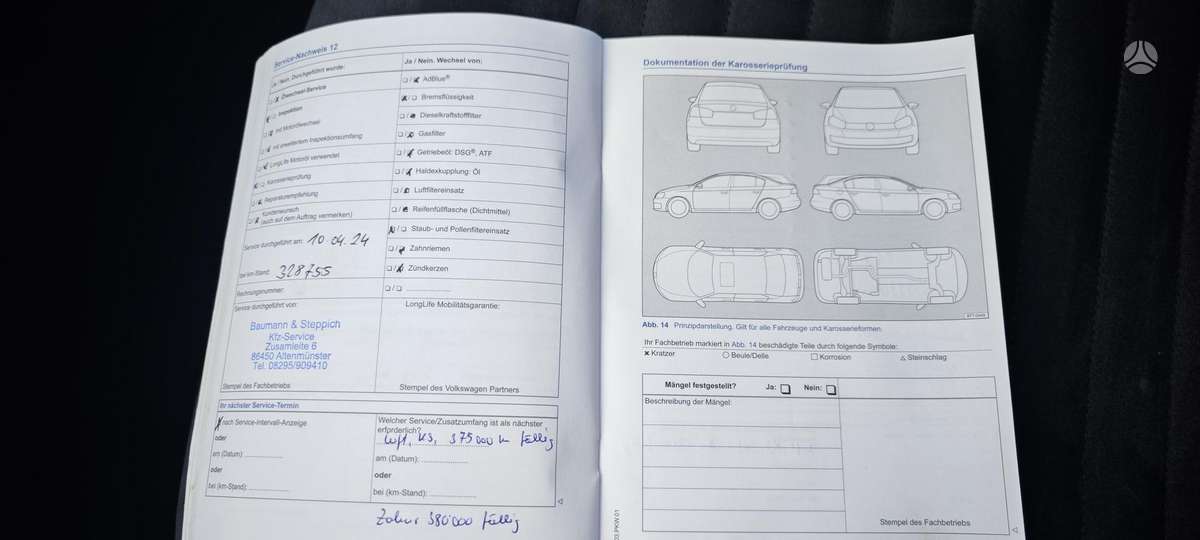 Service-Nachweis 12
Ja / Nein. Durchgeführt wurde:
Ölwechsel-Service
Inspektion
mit Motorölwechsel
mit erweitertem Inspektionsumfang
LongLife Motoröl verwendet
Karosserieprüfung
Reparaturempfehlung
Kundenwunsch
(auch auf dem Auftrag vermerken)
Service durchgeführt am: 10 04. 24
bei km-Stand: 328755
Rechnungsnummer:
Service durchgeführt von:
Baumann & Steppich
Kfz-Service
Zusamleite 6
86450 Altenmünster
Tel. 08295/909410
Stempel des Fachbetriebs
Ja / Nein. Wechsel von:
AdBlue®
Bremsflüssigkeit
Dieselkraftstofffilter
Gasfilter
Getriebeöl: DSG®, ATF
Haldexkupplung: Öl
Luftfiltereinsatz
Reifenfüllflasche (Dichtmittel)
Staub- und Pollenfiltereinsatz
Zahnriemen
Zündkerzen
LongLife Mobilitätsgarantie:
Stempel des Volkswagen Partners
Ihr nächster Service-Termin
nach Service-Intervall-Anzeige
oder
am (Datum)
oder
bei (km-Stand):
Welcher Service/Zusatzumfang ist als nächster
erforderlich?
Luft, KS, 375000 k fällig
am (Datum):
oder
bei (km-Stand):
380'000 fällig
Dokumentation der Karosserieprüfung
Abb. 14 Prinzipdarstellung. Gilt für alle Fahrzeuge und Karosserieformen.
Ihr Fachbetrieb markiert in Abb. 14 beschädigte Teile durch folgende Symbole:
Kratzer Beule/Delle Korrosion Steinschlag
Mängel festgestellt? Ja: Nein:
Beschreibung der Mängel:
Stempel des Fachbetriebs